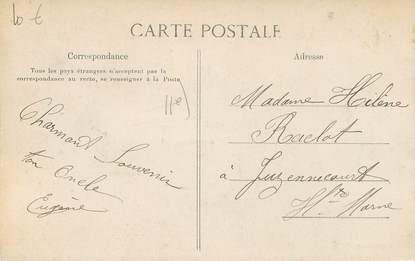 10 €
CARTE POSTALE
Correspondance
Tous les pays étrangers n'acceptent pas la
correspondance au recto, se renseigner à la Poste
11e)
Charmant Souvenir
ton Oncle
Eugène
Adresse
Madame Hélène
Raclot
à Juzennecourt
Hte Marne